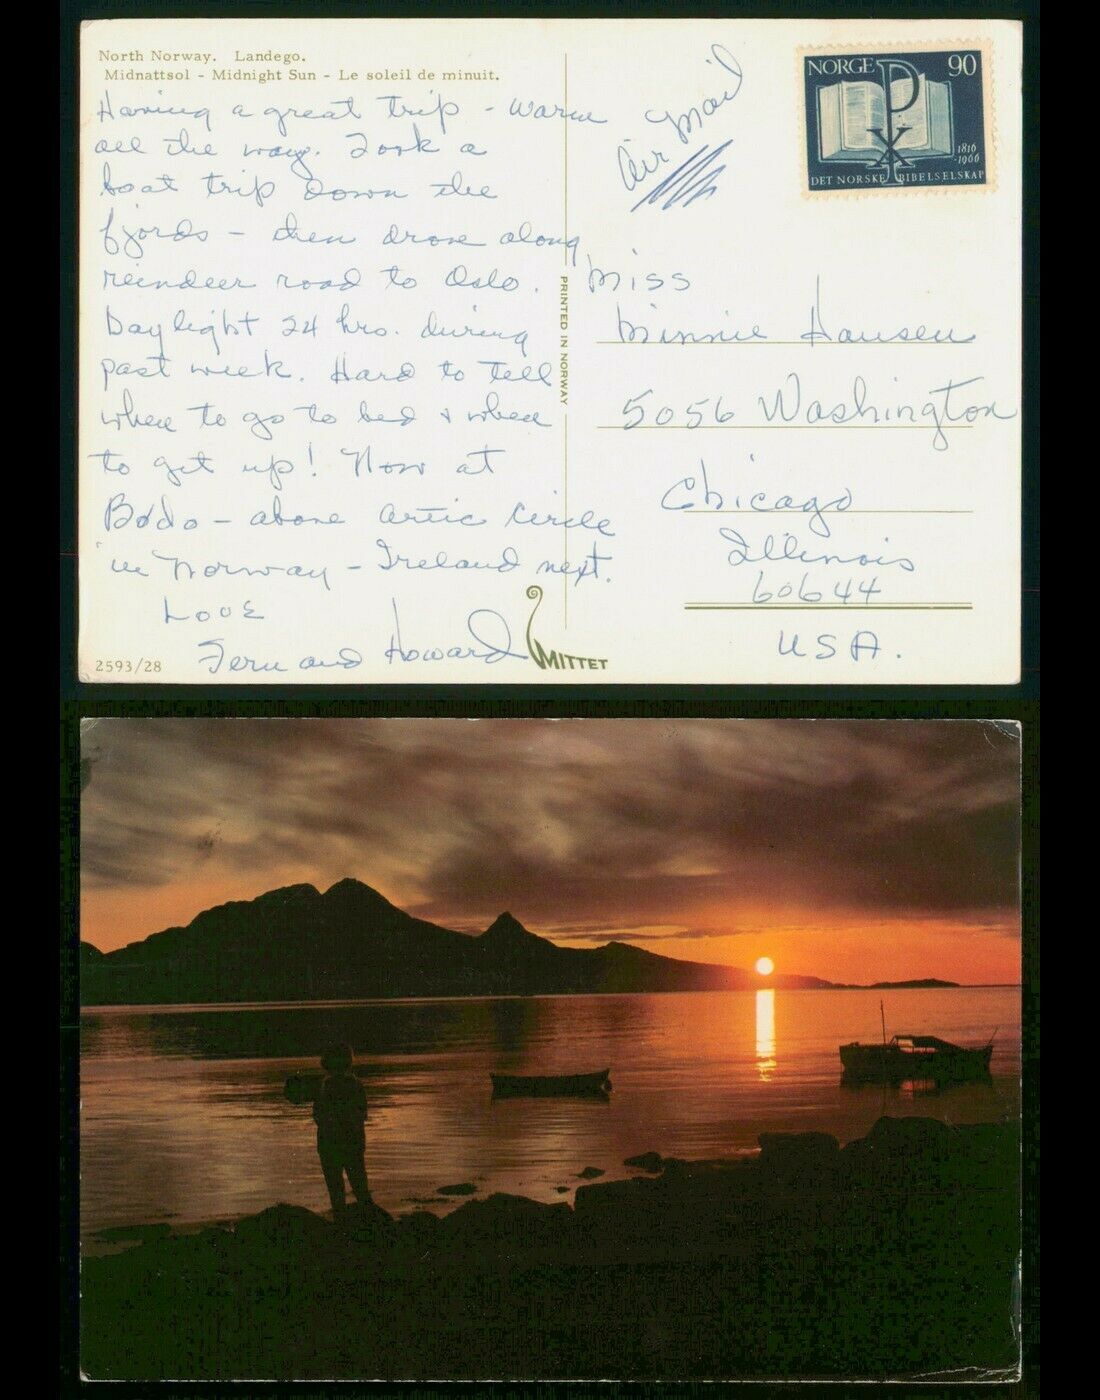 North Norway. Landego.
Midnattsol - Midnight Sun - Le soleil de minuit.
Having a great trip - warm
all the way. Took a
boat trip down the
fjords - then drove along
reindeer road to Oslo.
Daylight 24 hrs. during
past week. Hard to tell
when to go to bed & when
to get up! Now at
Bodo - above Artic Circle
in Norway - Ireland next.
Love
Fern and Howard
2593/28
MITTET
PRINTED IN NORWAY
Air Mail
NORGE 90
1816
-1966
DET NORSKE BIBELSELSKAP
Miss
Minnie Hansen
5056 Washington
Chicago
Illinois
60644
USA.